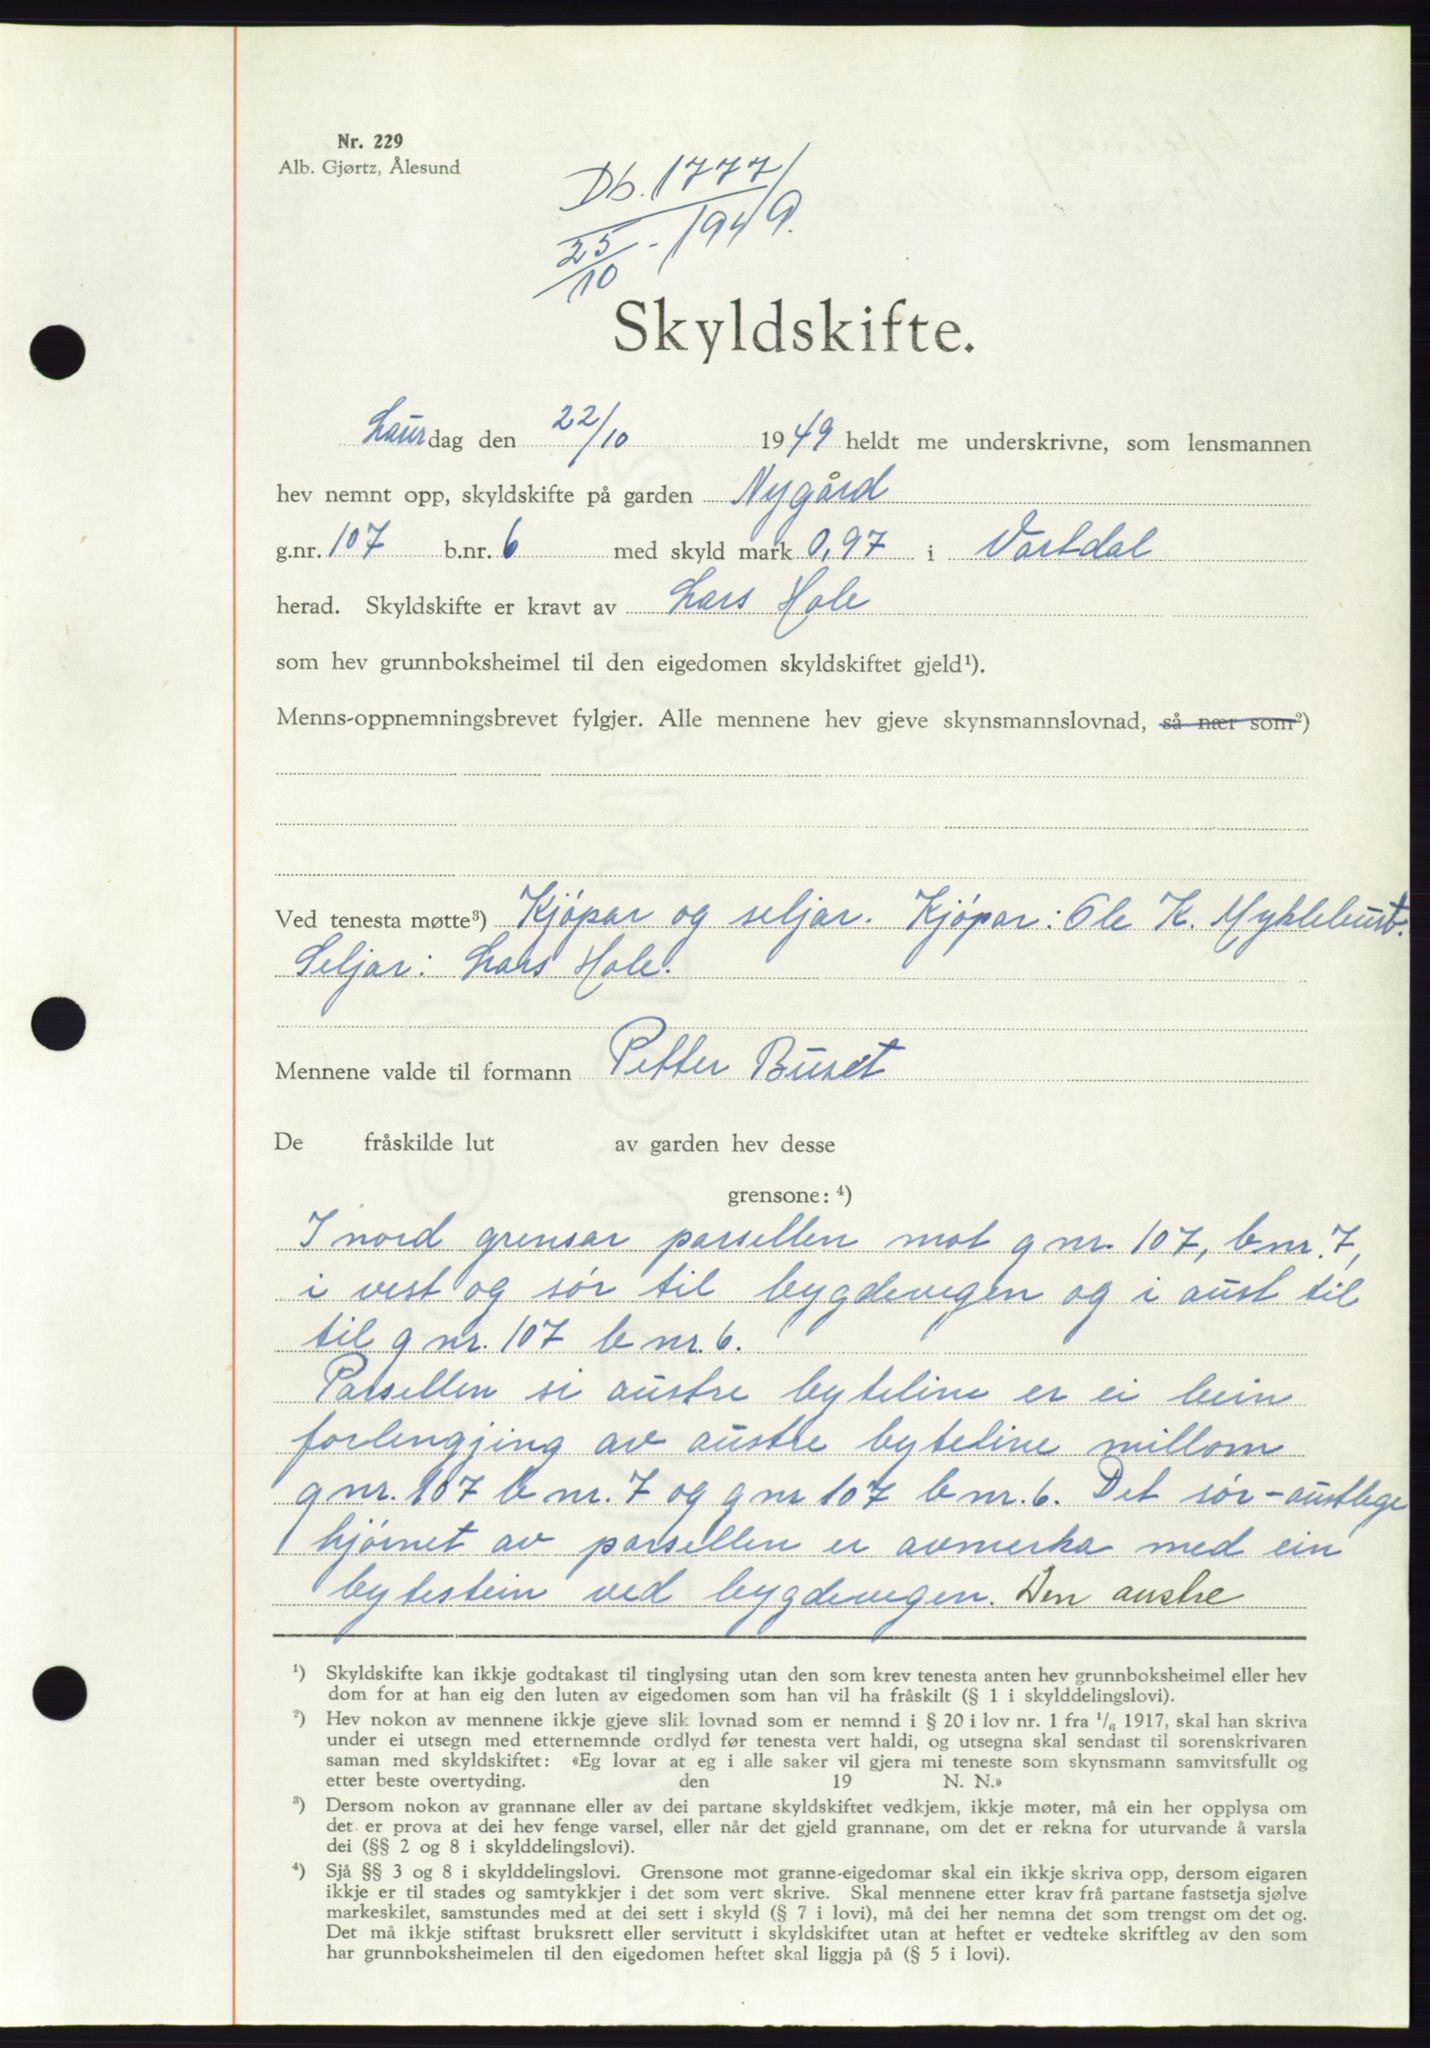 Nr. 229
Alb. Gjørtz, Ålesund
Db. 1777/
25/10 - 1949.
Skyldskifte.
Laurdag den 22/10 1949 heldt me underskrivne, som lensmannen
hev nemnt opp, skyldskifte på garden Nygård
g.nr. 107 b.nr. 6 med skyld mark 0,97 i Vartdal
herad. Skyldskifte er kravt av Lars Hole
som hev grunnboksheimel til den eigedomen skyldskiftet gjeld¹).
Menns-oppnemningsbrevet fylgjer. Alle mennene hev gjeve skynsmannslovnad, så nær som²)
Ved tenesta møtte³) Kjøpar og seljar. Kjøpar: Ole K. Myklebust.
Seljar: Lars Hole.
Mennene valde til formann Petter Buset
De fråskilde lut av garden hev desse
grensone: ⁴)
I nord grensar parsellen mot g nr. 107, b nr. 7,
i vest og sør til bygdevegen og i aust til
til g nr. 107 b nr. 6.
Parsellen si austre byteline er ei bein
forlengjing av austre byteline millom
g nr. 107 b nr. 7 og g nr 107 b nr. 6. Det sør-austlege
hjørnet av parsellen er avmerka med ein
bytestein ved bygdevegen. Den austre
¹) Skyldskifte kan ikkje godtakast til tinglysing utan den som krev tenesta anten hev grunnboksheimel eller hev
dom for at han eig den luten av eigedomen som han vil ha fråskilt (§ 1 i skylddelingslovi).
²) Hev nokon av mennene ikkje gjeve slik lovnad som er nemnd i § 20 i lov nr. 1 fra ¹/₆ 1917, skal han skriva
under ei utsegn med etternemnde ordlyd før tenesta vert haldi, og utsegna skal sendast til sorenskrivaren
saman med skyldskiftet: «Eg lovar at eg i alle saker vil gjera mi teneste som skynsmann samvitsfullt og
etter beste overtyding. den 19 N. N.»
³) Dersom nokon av grannane eller av dei partane skyldskiftet vedkjem, ikkje møter, må ein her opplysa om
det er prova at dei hev fenge varsel, eller når det gjeld grannane, om det er rekna for uturvande å varsla
dei (§§ 2 og 8 i skylddelingslovi).
⁴) Sjå §§ 3 og 8 i skylddelingslovi. Grensone mot granne-eigedomar skal ein ikkje skriva opp, dersom eigaren
ikkje er til stades og samtykkjer i det som vert skrive. Skal mennene etter krav frå partane fastsetja sjølve
markeskilet, samstundes med at dei sett i skyld (§ 7 i lovi), må dei her nemna det som trengst om det og.
Det må ikkje stiftast bruksrett eller servitutt i skyldskiftet utan at heftet er vedteke skriftleg av den som
har grunnboksheimelen til den eigedomen heftet skal liggja på (§ 5 i lovi).